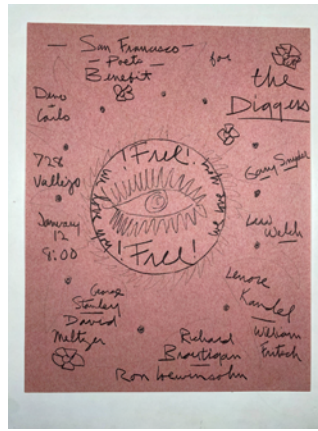 — San Francisco —
— Poets —
Benefit
for
the
Diggers
Dino
Carlo
728
Vallejo
January
12
8:00
! Free! .
! Free!
Gary Snyder
Lew
Welch
Lenore
Kandel
William
Fritsch
George
Stanley
David
Meltzer
Richard
Brautigan
Ron Loewinsohn